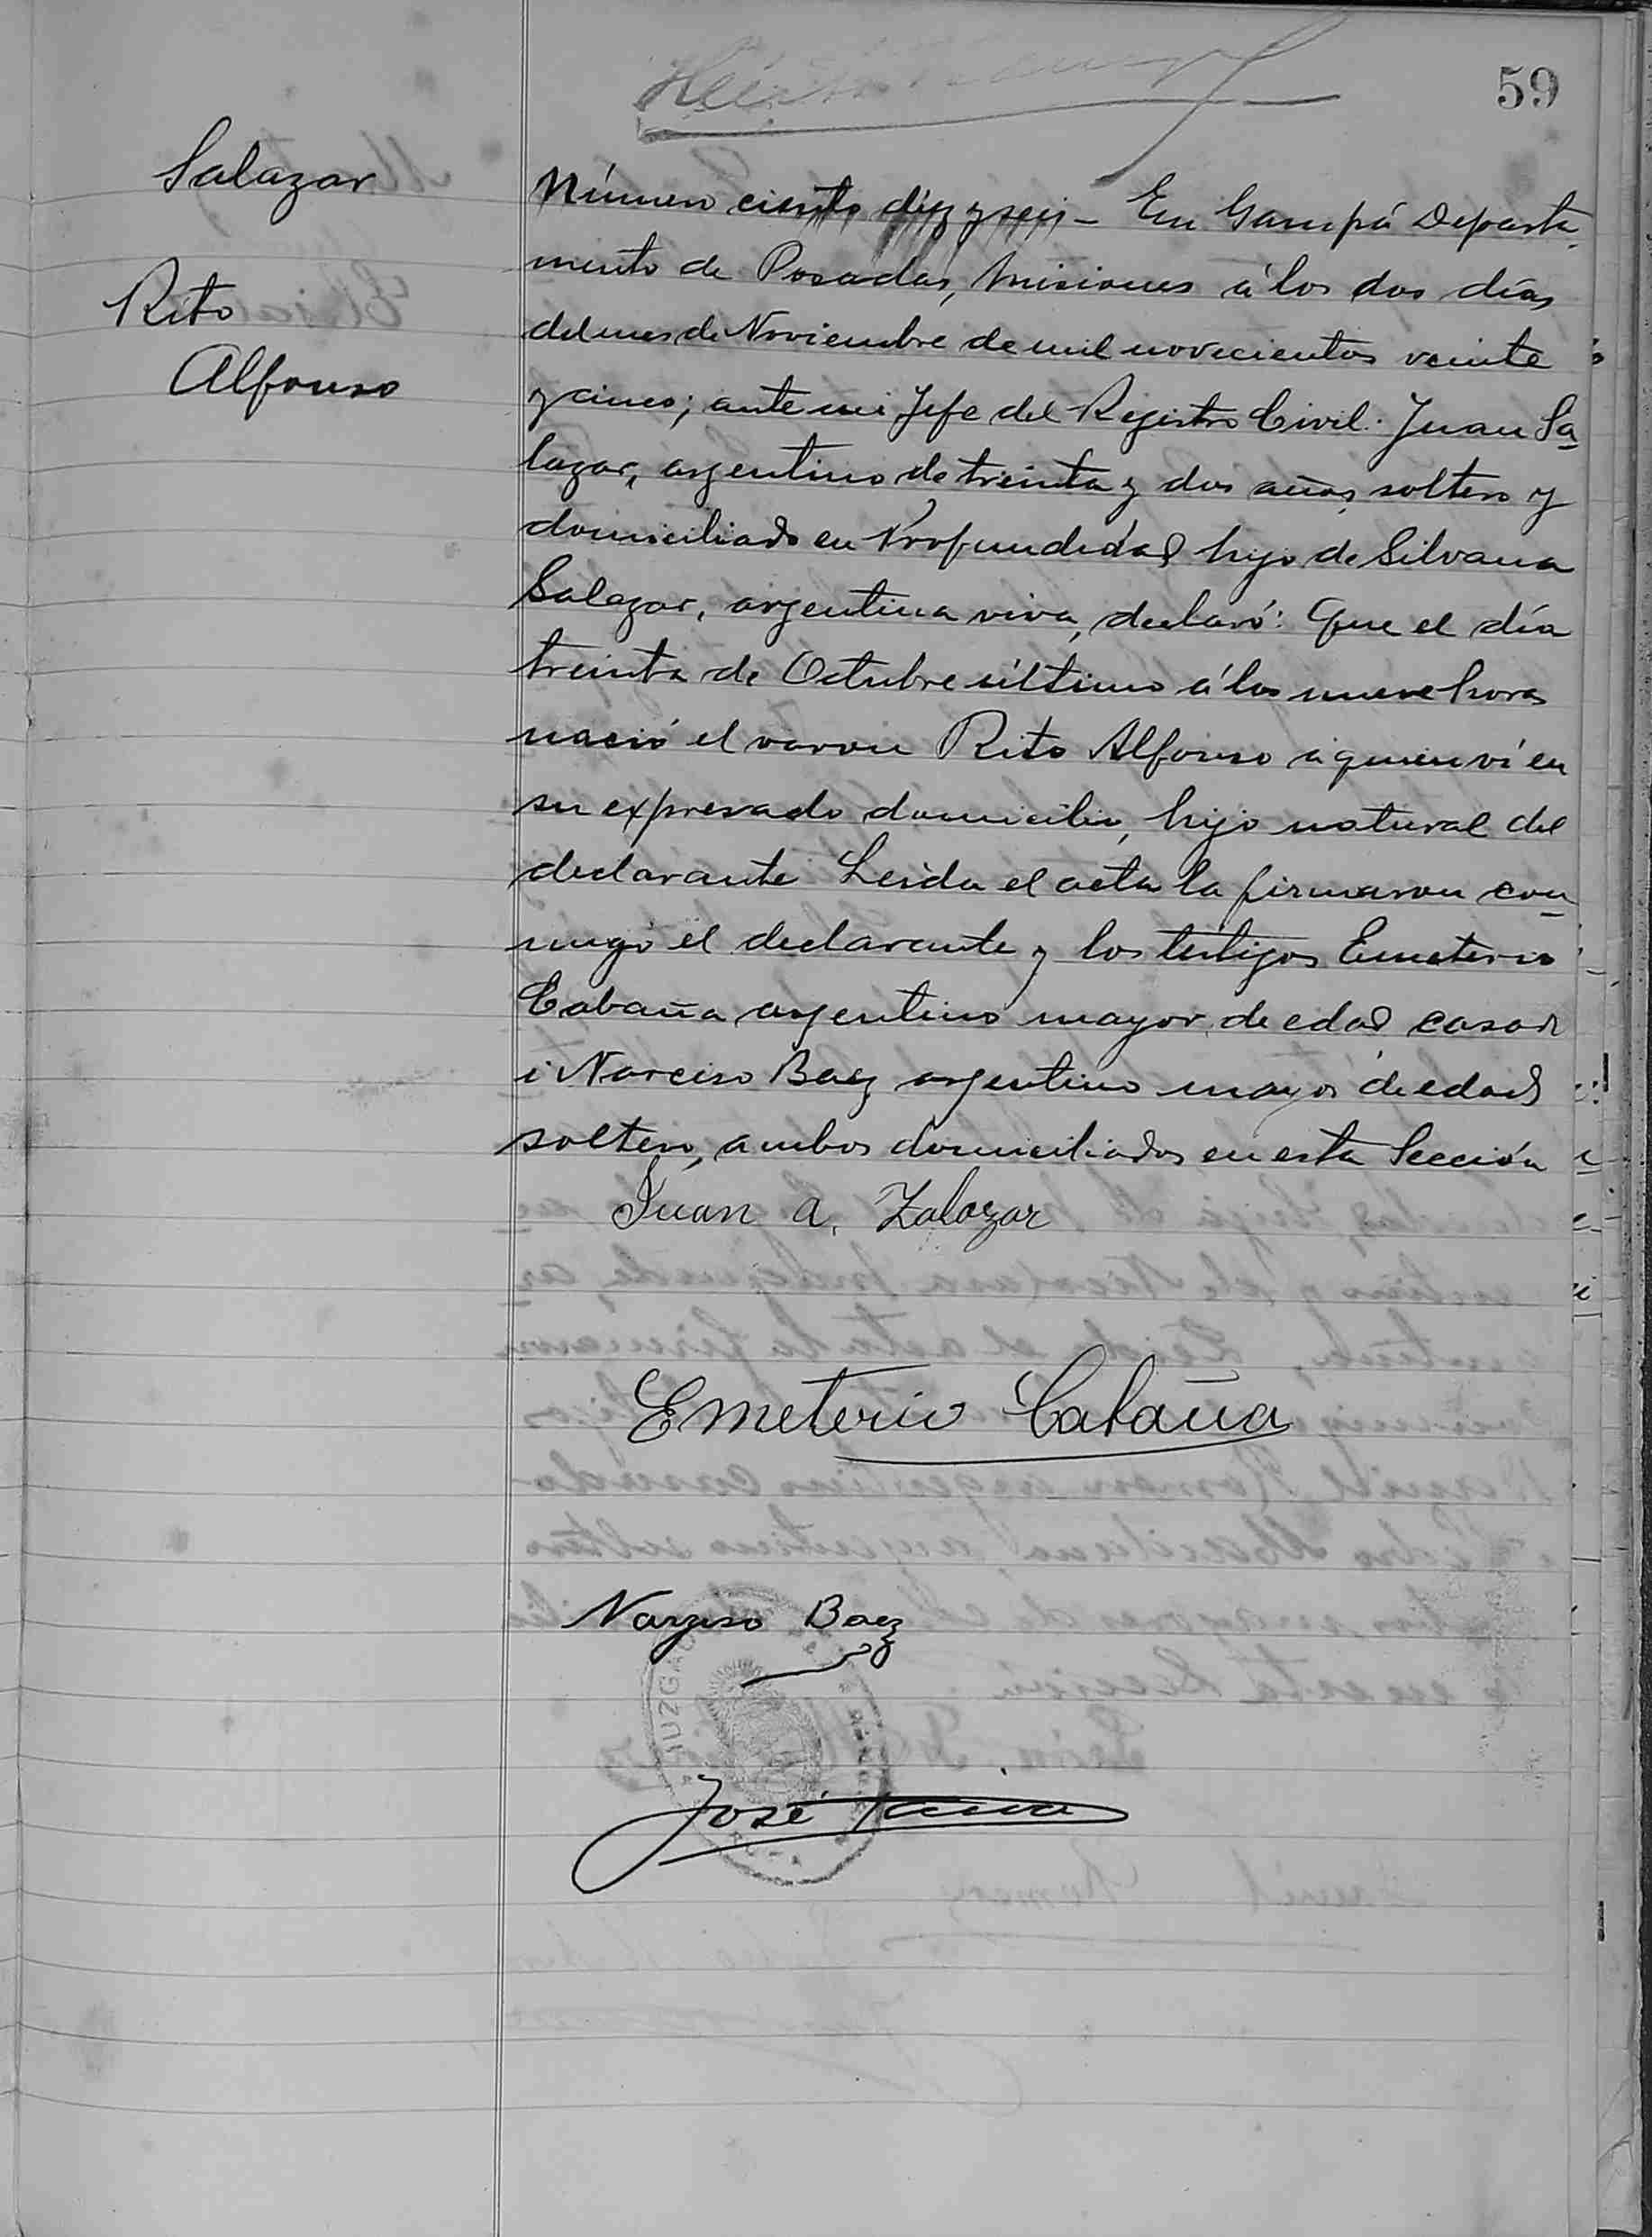 59
Salazar
Rito
Alfonso
Número ciento diez y seis - En Garupá Departa-
mento de Posadas, Misiones á los dos días
del mes de Noviembre de mil novecientos veinte
y cinco; ante mi Jefe del Registro Civil. Juan Sa-
lazar, argentino de treinta y dos años, soltero y
domiciliado en Profundidad hijo de Silvana
Salazar, argentina viva, declaró: Que el día
treinta de Octubre último á las nueve horas
nació el varon Rito Alfonso á quien ví en
su expresado domicilio, hijo natural del
declarante Leida el acta la firmaron con-
migo el declarante y los testigos Emeterio
Cabaña argentino mayor de edad casado
i Narciso Baez argentino mayor de edad
soltero, ambos domiciliados en esta Sección
Juan A. Zalazar
Emeterio Cabaña
Narziso Baez
JUZGA
José